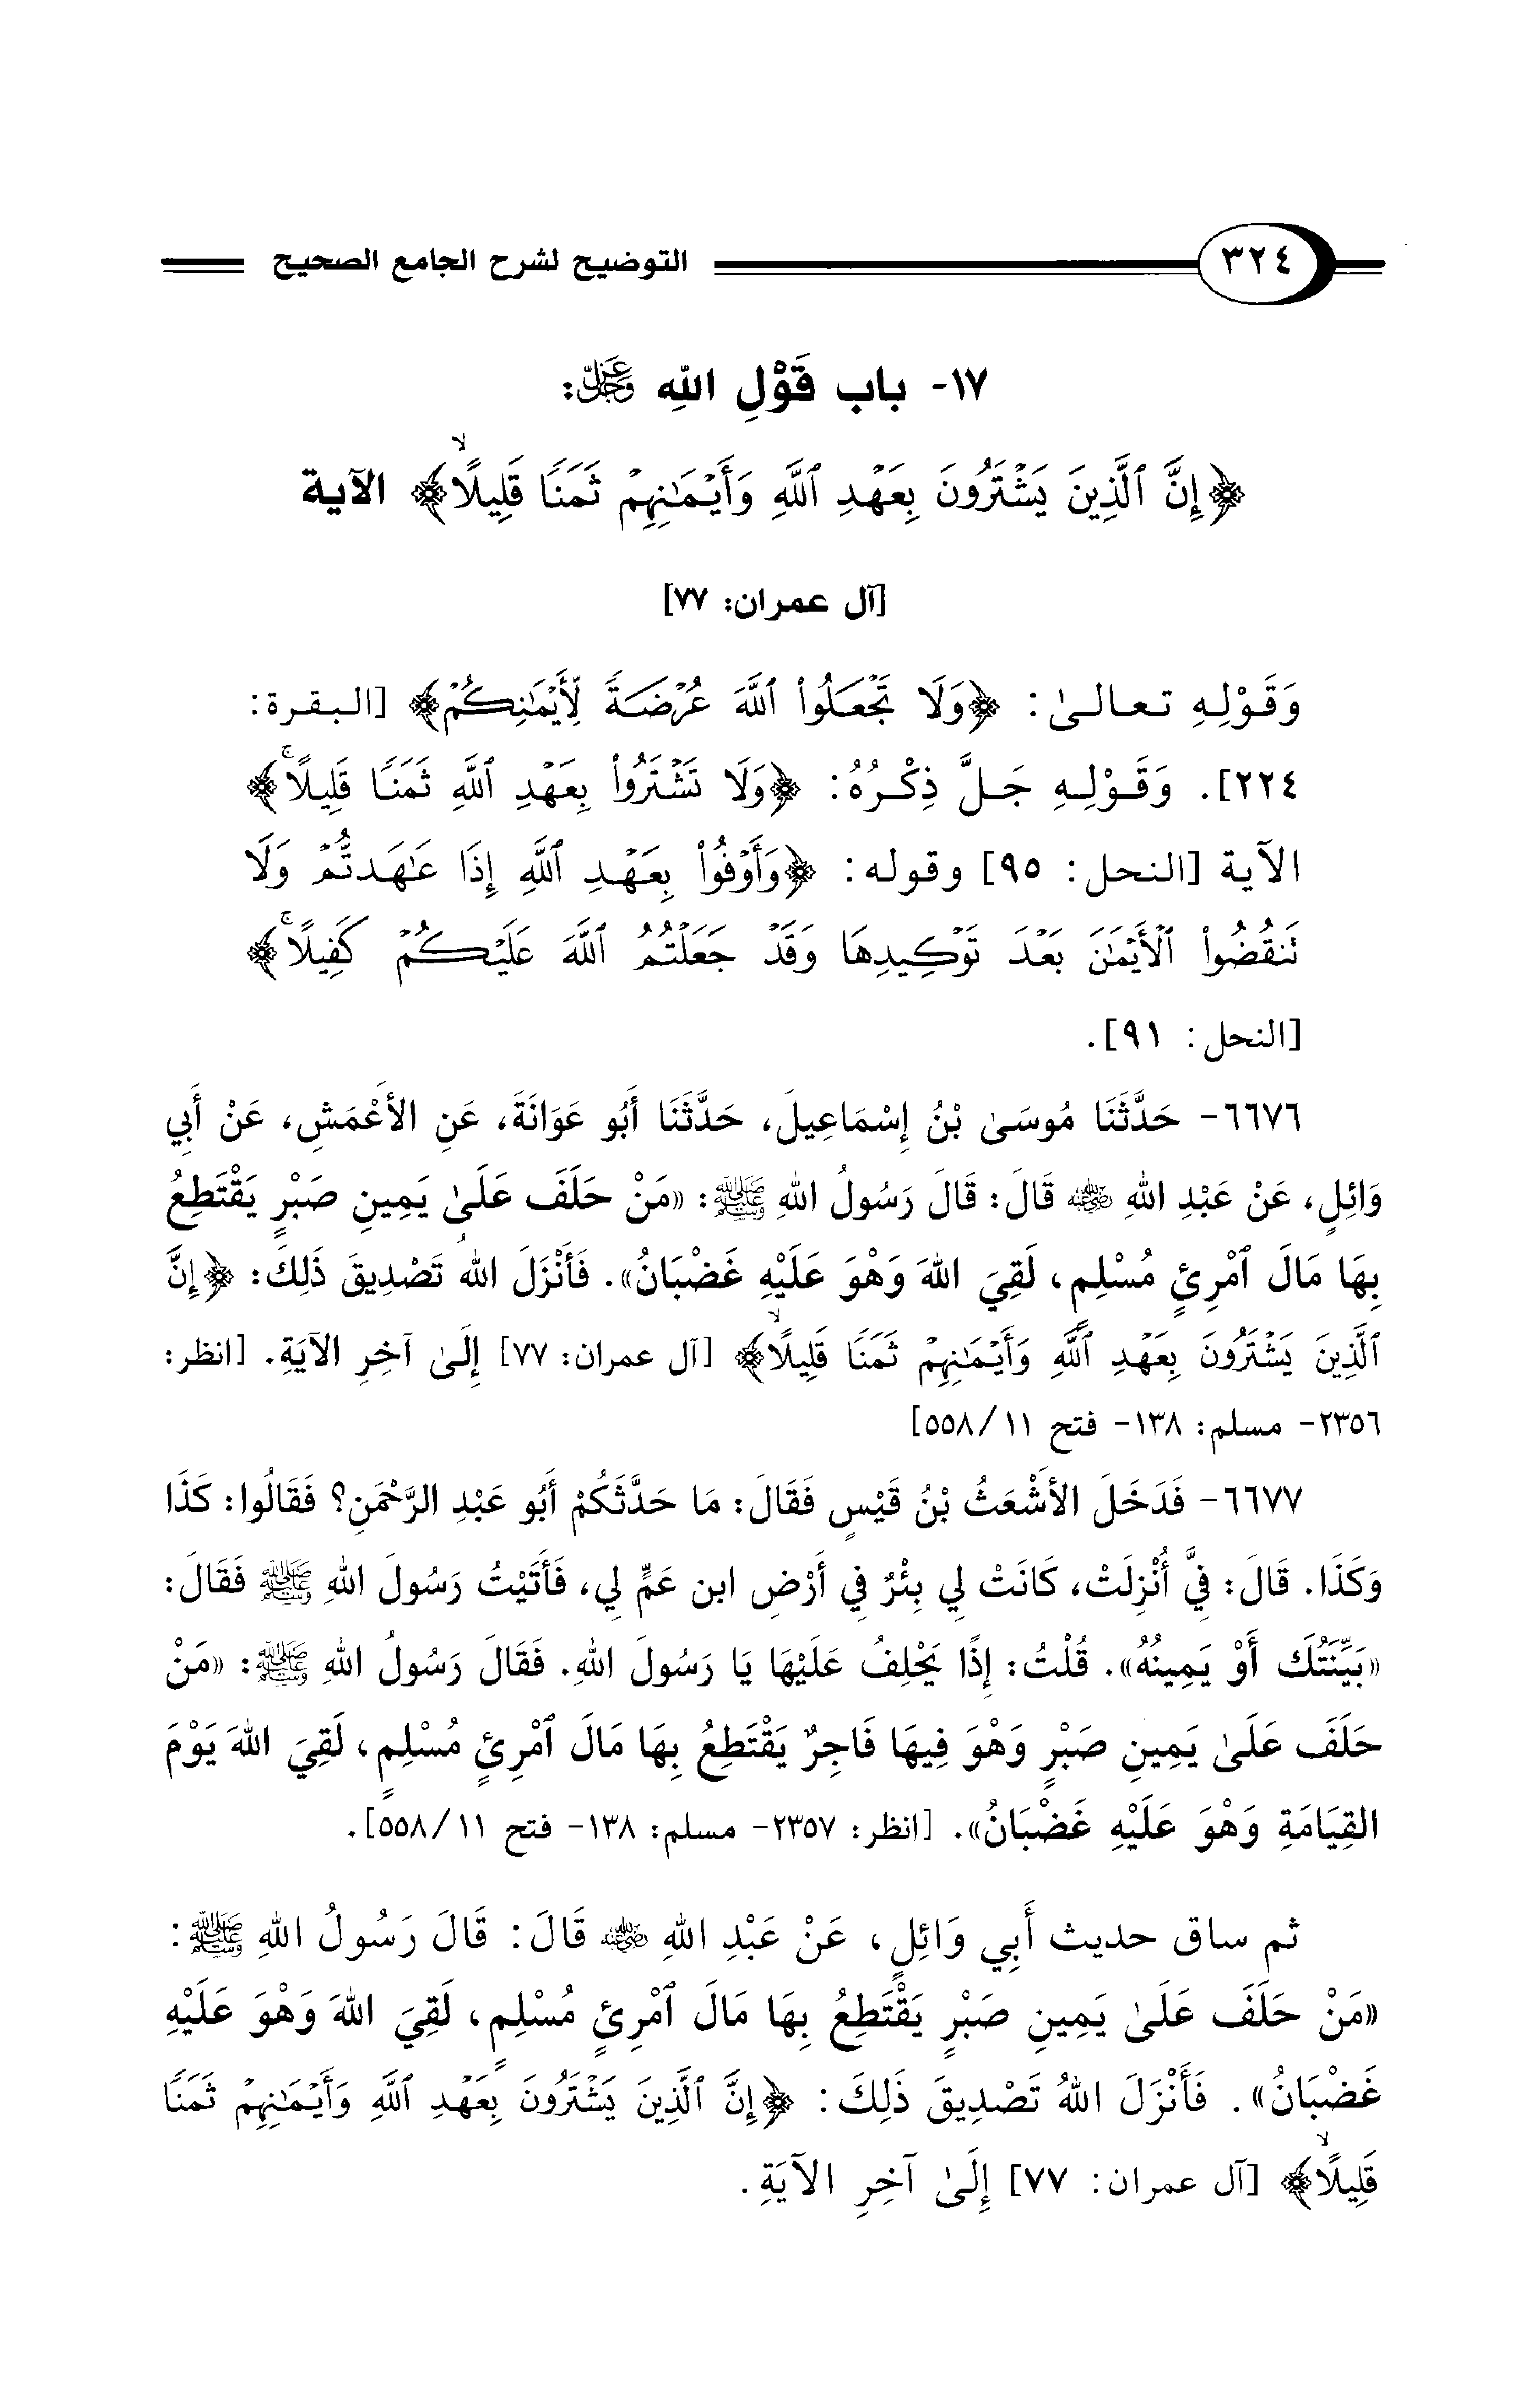 ٣٢٤ التوضيح لشرح الجامع الصحيح
١٧- باب قَوْلِ اللهِ عَزَّ وَجَلَّ:
﴿إِنَّ ٱلَّذِينَ يَشْتَرُونَ بِعَهْدِ ٱللَّهِ وَأَيْمَٰنِهِمْ ثَمَنًا قَلِيلًاۙ﴾ الآية
[آل عمران: ٧٧]
وَقَوْلِهِ تعالىٰ: ﴿وَلَا تَجْعَلُواْ ٱللَّهَ عُرْضَةً لِّأَيْمَٰنِكُمْ﴾ [البقرة:
٢٢٤]. وَقَوْلِهِ جَلَّ ذِكْرُهُ: ﴿وَلَا تَشْتَرُواْ بِعَهْدِ ٱللَّهِ ثَمَنًا قَلِيلًاۚ﴾
الآية [النحل: ٩٥] وقوله: ﴿وَأَوْفُواْ بِعَهْدِ ٱللَّهِ إِذَا عَٰهَدتُّمْ وَلَا
تَنقُضُواْ ٱلْأَيْمَٰنَ بَعْدَ تَوْكِيدِهَا وَقَدْ جَعَلْتُمُ ٱللَّهَ عَلَيْكُمْ كَفِيلًاۚ﴾
[النحل: ٩١].
٦٦٧٦- حَدَّثَنَا مُوسَىٰ بْنُ إِسْمَاعِيلَ، حَدَّثَنَا أَبُو عَوَانَةَ، عَنِ الأَعْمَشِ، عَنْ أَبِي
وَائِلٍ، عَنْ عَبْدِ اللهِ رضي الله عنه قَالَ: قَالَ رَسُولُ اللهِ ﷺ: «مَنْ حَلَفَ عَلَىٰ يَمِينِ صَبْرٍ يَقْتَطِعُ
بِهَا مَالَ ٱمْرِئٍ مُسْلِمٍ، لَقِيَ اللهَ وَهْوَ عَلَيْهِ غَضْبَانُ». فَأَنْزَلَ اللهُ تَصْدِيقَ ذَلِكَ: ﴿إِنَّ
ٱلَّذِينَ يَشْتَرُونَ بِعَهْدِ ٱللَّهِ وَأَيْمَٰنِهِمْ ثَمَنًا قَلِيلًاۙ﴾ [آل عمران: ٧٧] إِلَىٰ آخِرِ الآيَةِ. [انظر:
٢٣٥٦- مسلم: ١٣٨- فتح ١١/ ٥٥٨]
٦٦٧٧- فَدَخَلَ الأَشْعَثُ بْنُ قَيْسٍ فَقَالَ: مَا حَدَّثَكُمْ أَبُو عَبْدِ الرَّحْمَنِ؟ فَقَالُوا: كَذَا
وَكَذَا. قَالَ: فِيَّ أُنْزِلَتْ، كَانَتْ لِي بِئْرٌ فِي أَرْضِ ابن عَمٍّ لِي، فَأَتَيْتُ رَسُولَ اللهِ ﷺ فَقَالَ:
«بَيِّنَتُكَ أَوْ يَمِينُهُ». قُلْتُ: إِذًا يَحْلِفُ عَلَيْهَا يَا رَسُولَ اللهِ. فَقَالَ رَسُولُ اللهِ ﷺ: «مَنْ
حَلَفَ عَلَىٰ يَمِينِ صَبْرٍ وَهْوَ فِيهَا فَاجِرٌ يَقْتَطِعُ بِهَا مَالَ ٱمْرِئٍ مُسْلِمٍ، لَقِيَ اللهَ يَوْمَ
القِيَامَةِ وَهْوَ عَلَيْهِ غَضْبَانُ». [انظر: ٢٣٥٧- مسلم: ١٣٨- فتح ١١/ ٥٥٨].
ثم ساق حديث أَبِي وَائِلٍ، عَنْ عَبْدِ اللهِ رضي الله عنه قَالَ: قَالَ رَسُولُ اللهِ ﷺ:
«مَنْ حَلَفَ عَلَىٰ يَمِينِ صَبْرٍ يَقْتَطِعُ بِهَا مَالَ ٱمْرِئٍ مُسْلِمٍ، لَقِيَ اللهَ وَهْوَ عَلَيْهِ
غَضْبَانُ». فَأَنْزَلَ اللهُ تَصْدِيقَ ذَلِكَ: ﴿إِنَّ ٱلَّذِينَ يَشْتَرُونَ بِعَهْدِ ٱللَّهِ وَأَيْمَٰنِهِمْ ثَمَنًا
قَلِيلًاۙ﴾ [آل عمران: ٧٧] إِلَىٰ آخِرِ الآيَةِ.